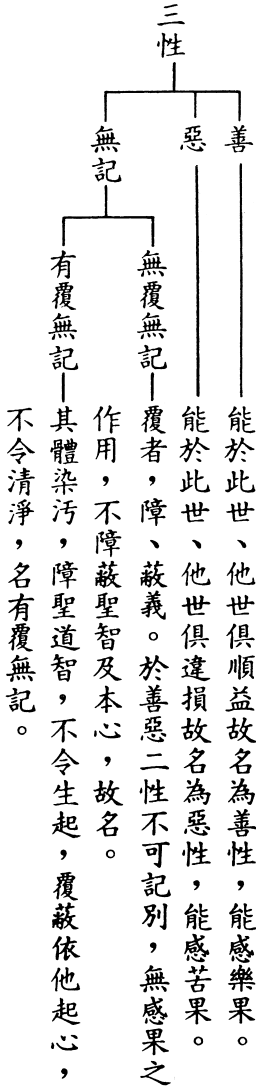 三性
善
能於此世、他世俱順益故名為善性，能感樂果。
惡
能於此世、他世俱違損故名為惡性，能感苦果。
無記
無覆無記
覆者，障、蔽義。於善惡二性不可記別，無感果之
作用，不障蔽聖智及本心，故名。
有覆無記
其體染污，障聖道智，不令生起，覆蔽依他起心，
不令清淨，名有覆無記。